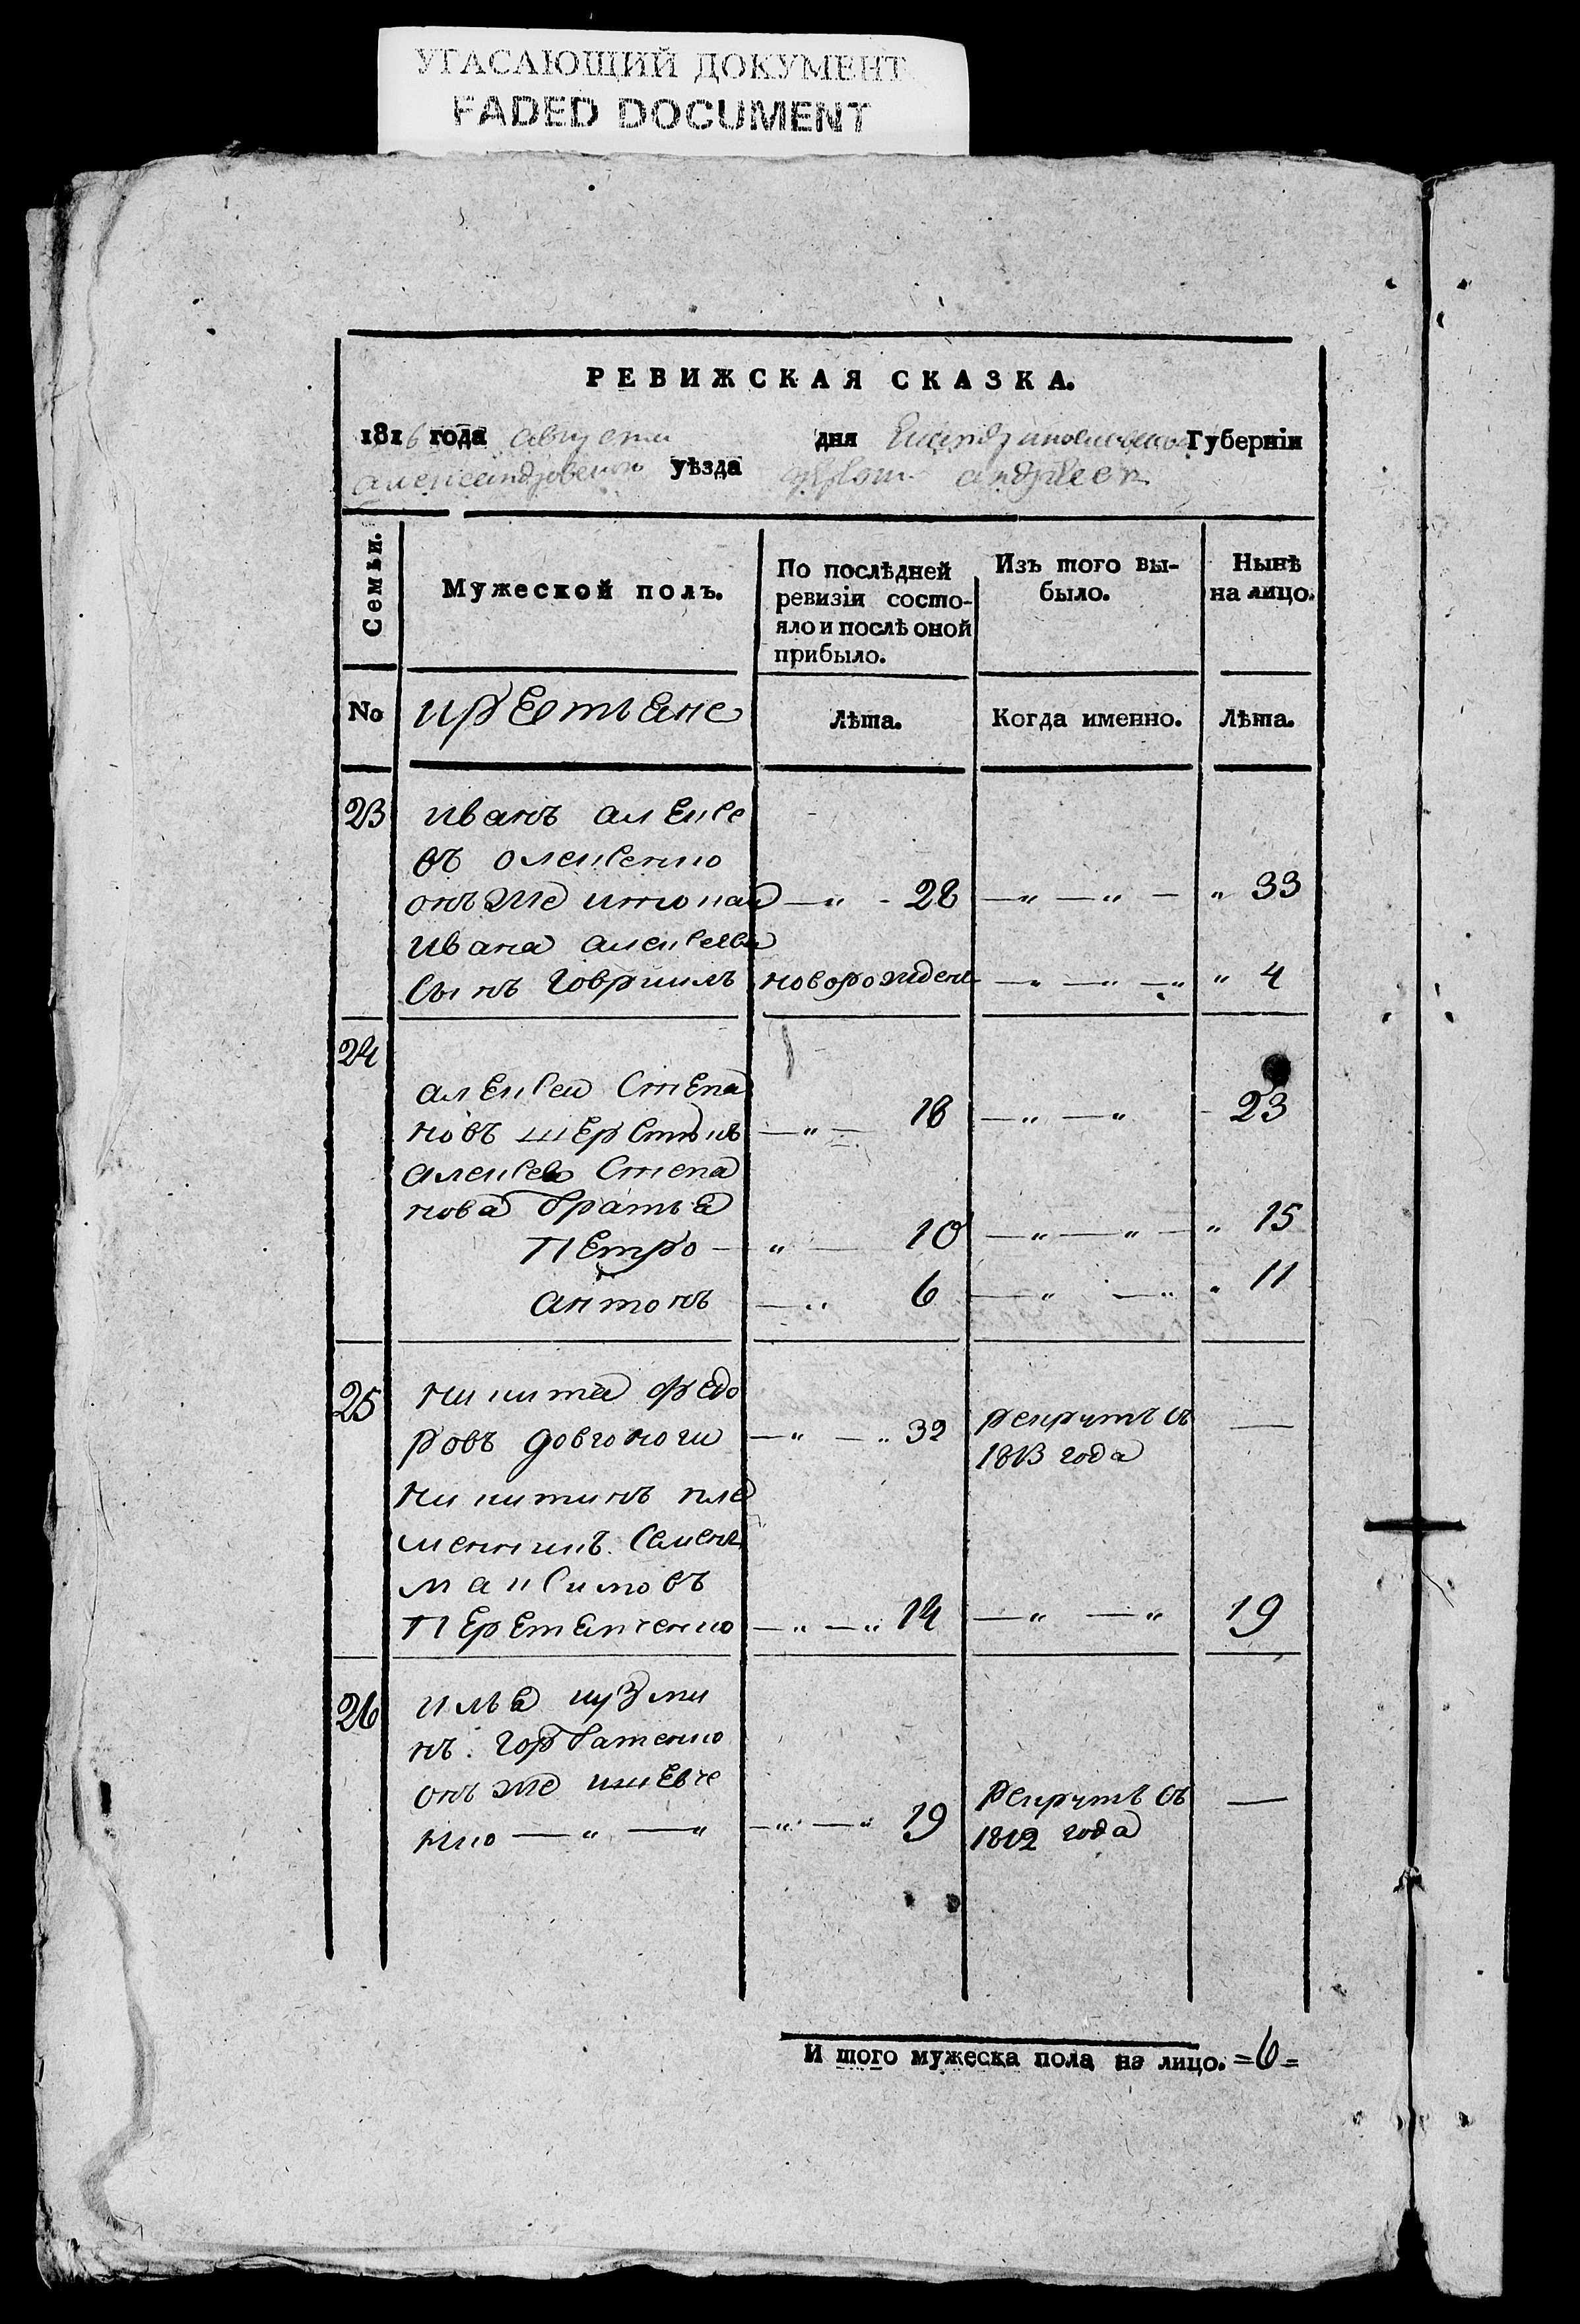 УГАСАЮЩИЙ ДОКУМЕНТ
FADED DOCUMENT
РЕВИЖСКАЯ СКАЗКА.
1816 года августа дня Екатеринославской Губерніи
александровского уѣзда андреев
Семьи.
Мужеской полъ.
По послѣдней
ревизіи состо-
яло и послѣ оной
прибыло.
Изъ того вы-
было.
Нынѣ
на лицо.
No крестьяне Лѣта. Когда именно. Лѣта.
23 иванъ алексе
въ олексенко
онъ же 28 — „ — „ — „ 33
ивана алексеева
Сынъ Гаврилъ новорожденъ — „ — „ — „ „ 4
24
алексей Степа
новъ — „ — 18 — „ — „ 23
алексея Степа
нова братья
Петро — „ — 10 — „ — „ — „ 15
антонъ — „ 6 — „ — „ „ 11
25 никита федо
ровъ довгоноги — „ — „ 32 рекрутъ съ —
1813 года
никитинъ пле
менникъ Семенъ
максимовъ
Перетятенко — „ — „ 14 — „ — „ 19
26 илья кузми
нъ. горбатенко
онъ же шевче
нко — „ — „ — „ — „ 19 рекрутъ съ —
1812 года
И того мужеска пола на лицо. = 6 =